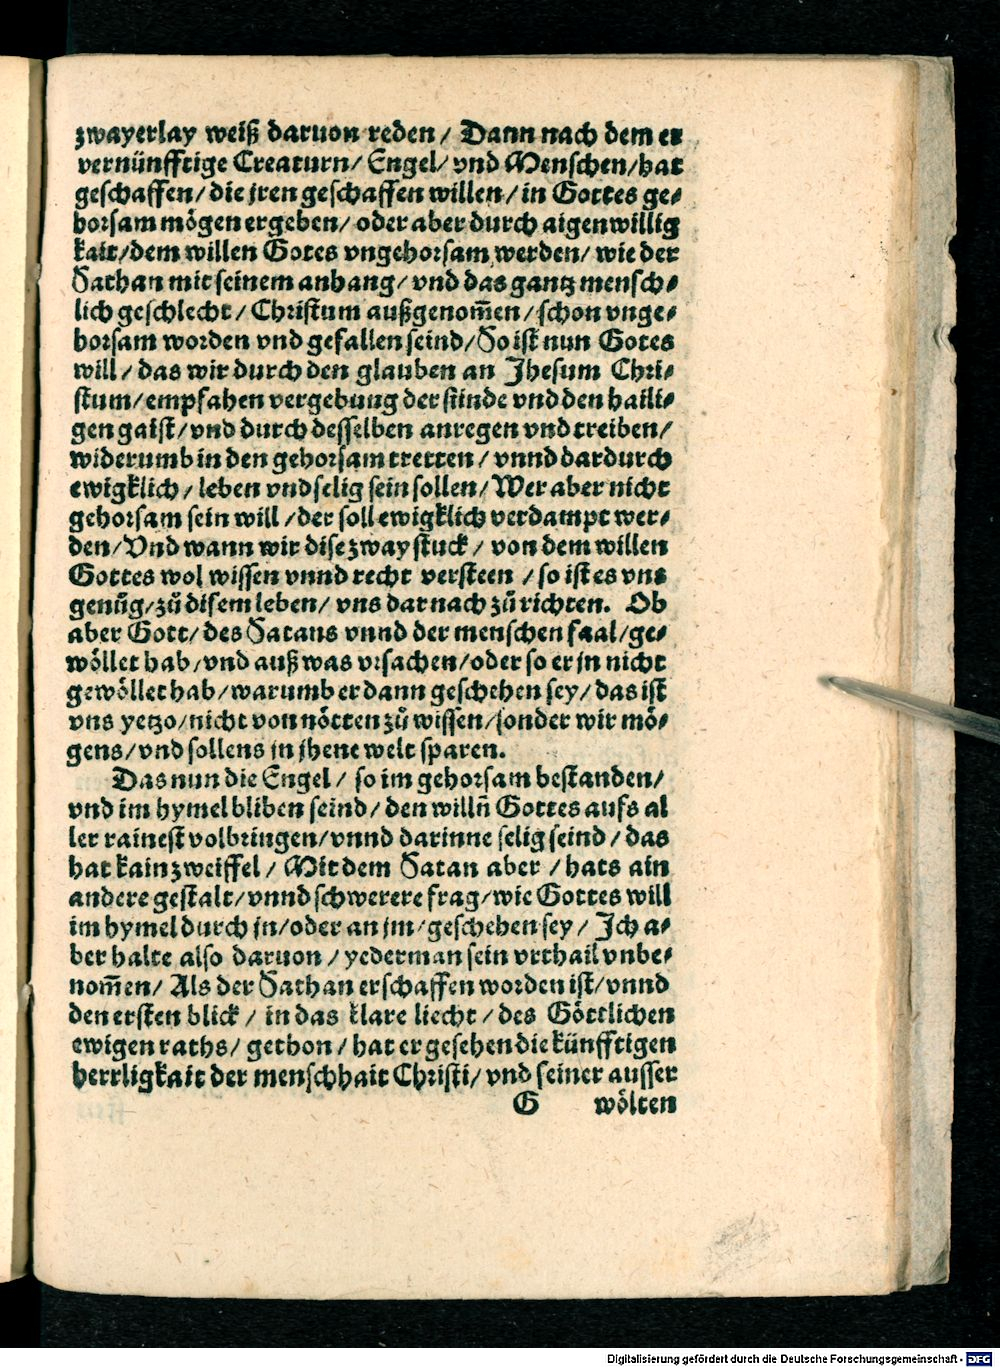 zwayerlay weiß daruon reden / Dann nach dem er
vernünfftige Creaturn / Engel / vnd Menschen / hat
geschaffen / die jren geschaffen willen / in Gottes ge⸗
horsam mögen ergeben / oder aber durch aigenwillig
kait / dem willen Gotes vngehorsam werden / wie der
Sathan mit seinem anhang / vnd das gantz mensch⸗
lich geschlecht / Christum außgenom̃en / schon vnge⸗
horsam worden vnd gefallen seind / So ist nun Gotes
will / das wir durch den glauben an Jhesum Chri⸗
stum / empfahen vergebung der sünde vnd den haili⸗
gen gaist / vnd durch desselben anregen vnd treiben /
widerumb in den gehorsam tretten / vnnd dardurch
ewigklich / leben vnd selig sein sollen / Wer aber nicht
gehorsam sein will / der soll ewigklich verdampt wer⸗
den / Vnd wann wir dise zway stuck / von dem willen
Gottes wol wissen vnnd recht versteen / so ist es vns
genůg / zů disem leben / vns darnach zů richten. Ob
aber Gott / des Satans vnnd der menschen faal / ge⸗
wöllet hab / vnd auß was vrsachen / oder so er jn nicht
gewöllet hab / warumb er dann geschehen sey / das ist
vns yetzo / nicht von nötten zů wissen / sonder wir mö⸗
gens / vnd sollens in jhene welt sparen.
Das nun die Engel / so im gehorsam bestanden /
vnd im hymel bliben seind / den willn̄ Gottes aufs al
ler rainest volbringen / vnnd darinne selig seind / das
hat kain zweiffel / Mit dem Satan aber / hats ain
andere gestalt / vnnd schwerere frag / wie Gottes will
im hymel durch jn / oder an jm / geschehen sey / Ich a⸗
ber halte also daruon / yederman sein vrthail vnbe⸗
nom̃en / Als der Sathan erschaffen worden ist / vnnd
den ersten blick / in das klare liecht / des Göttlichen
ewigen raths / gethon / hat er gesehen die künfftigen
herrligkait der menschhait Christi / vnd seiner ausser
G wölten
Digitalisierung gefördert durch die Deutsche Forschungsgemeinschaft - DFG